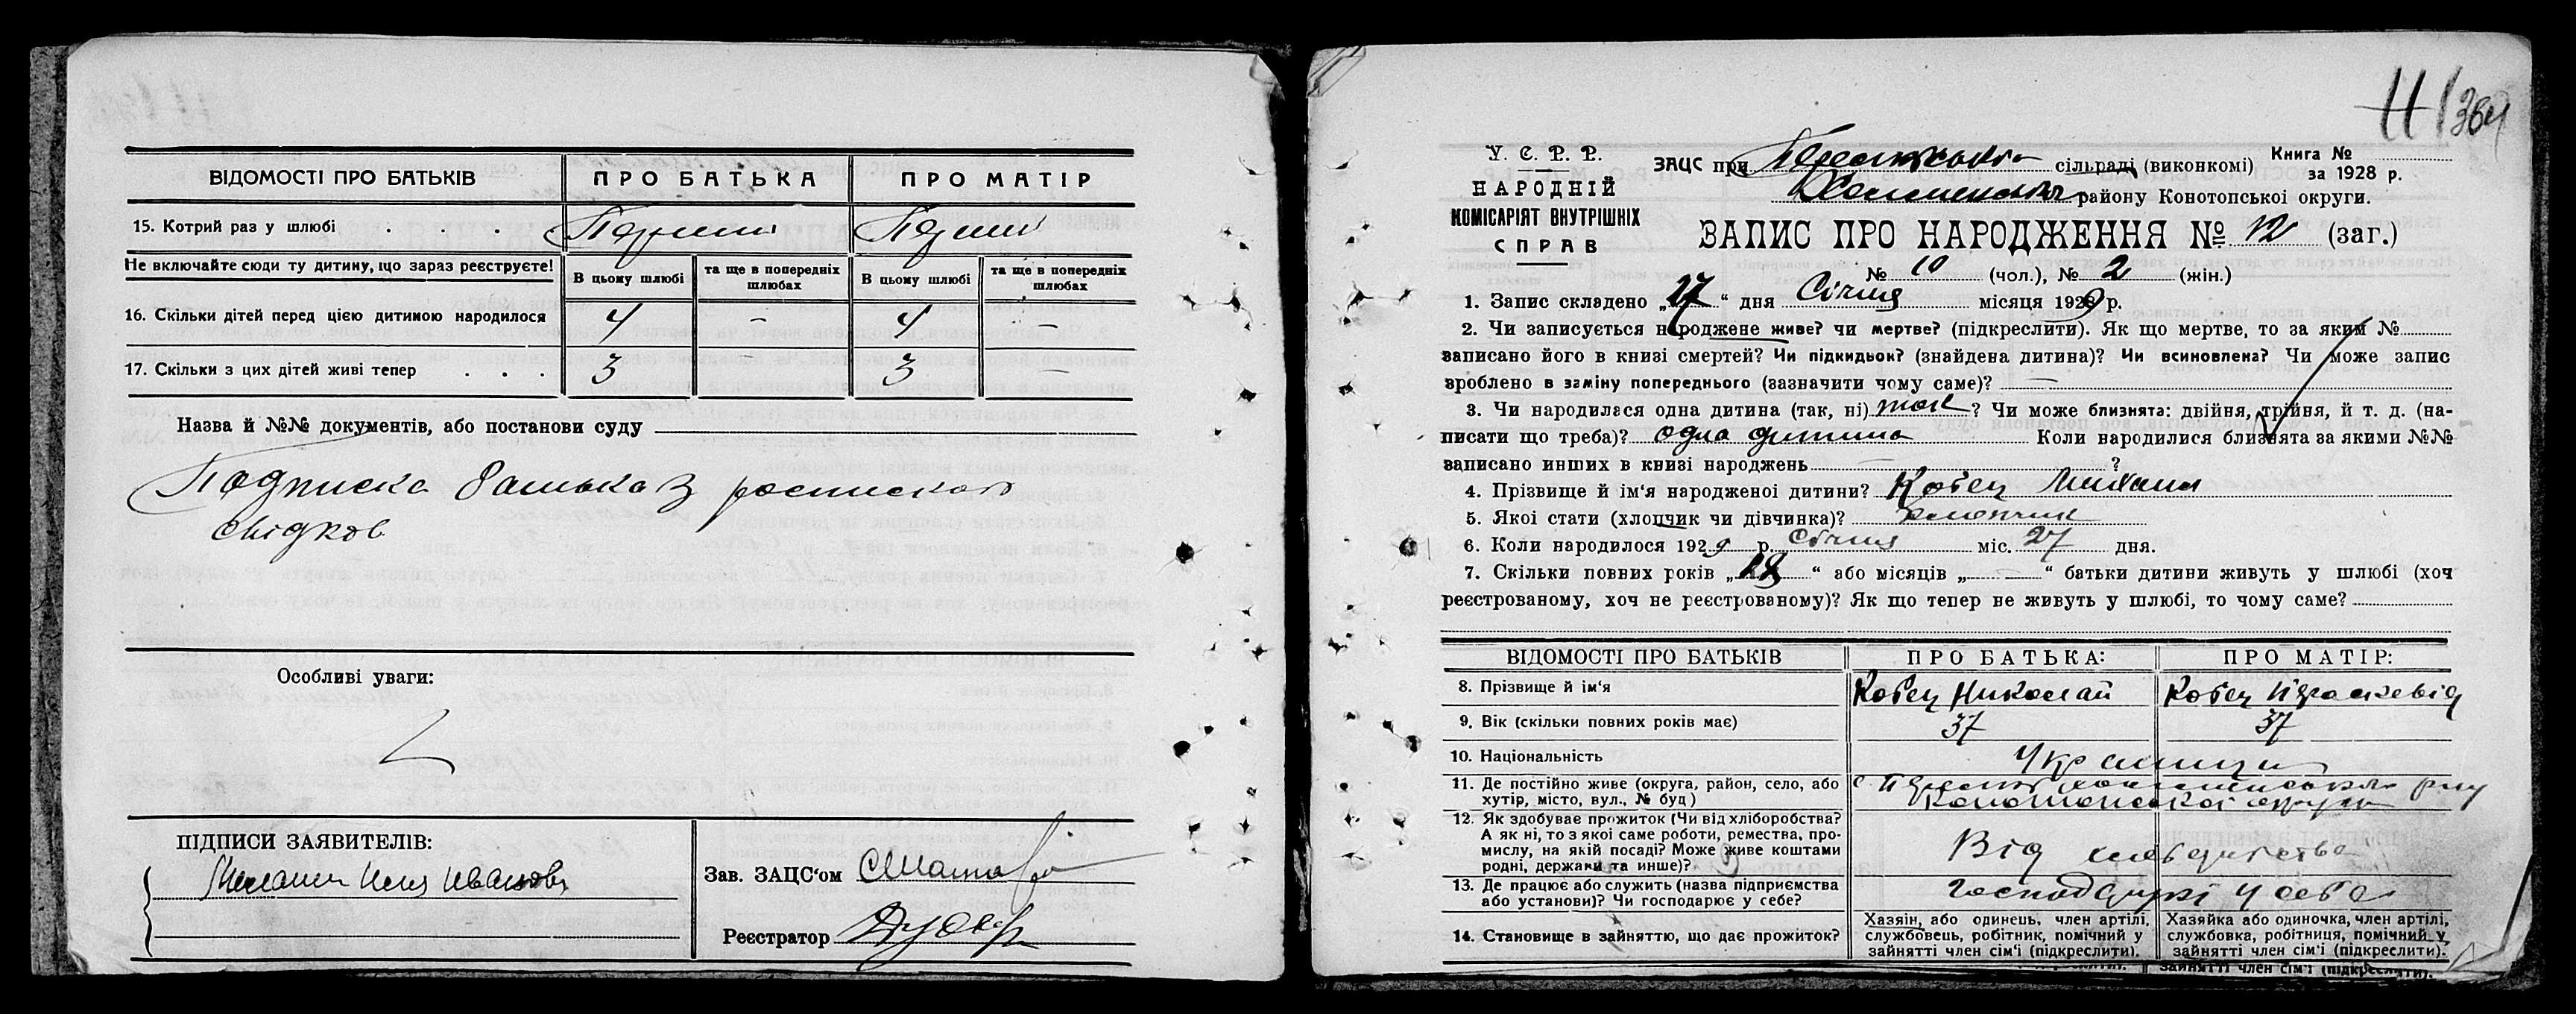 ВІДОМОСТІ ПРО БАТЬКІВ
ПРО БАТЬКА
ПРО МАТІР
15. Котрий раз у шлюбі . . .
Перший
Перший
Не включайте сюди ту дитину, що зараз реєструєте!
В цьому шлюбі
та ще в попередніх шлюбах
В цьому шлюбі
та ще в попередніх шлюбах
16. Скільки дітей перед цією дитиною народилося
4 — 4 —
17. Скільки з цих дітей живі тепер . . .
3 — 3 —
Назва й №№ документів, або постанови суду
Подписка батька з роспискою
свідков
Особливі уваги:
ПІДПИСИ ЗАЯВИТЕЛІВ:
Зав. ЗАЦС'ом
Реєстратор
11 364
У. С. Р. Р.
НАРОДНІЙ
КОМІСАРІЯТ ВНУТРІШНІХ
СПРАВ
ЗАЦС при сільраді (виконкомі)
Книга №
за 1928 р.
району Конотопської округи.
ЗАПИС ПРО НАРОДЖЕННЯ № 12 (заг.)
№ 10 (чол.), № 2 (жін.)
1. Запис складено „27" дня Січня місяця 1929 р.
2. Чи записується народжене живе? чи мертве? (підкреслити). Як що мертве, то за яким №
записано його в книзі смертей? Чи підкидьок? (знайдена дитина)? Чи всиновлена? Чи може запис
зроблено в заміну попереднього (зазначити чому саме)? —
3. Чи народилася одна дитина (так, ні) так? Чи може близнята: двійня, трійня, й т. д. (на-
писати що треба)? одна дитина Коли народилися близнята за якими №№
записано инших в книзі народжень — ?
4. Прізвище й ім'я народженої дитини? Кобец Михаил
5. Якої стати (хлопчик чи дівчинка)? хлопчик
6. Коли народилося 1929 р. Січня міс. 27 дня.
7. Скільки повних років „18" або місяців „—" батьки дитини живуть у шлюбі (хоч
реєстрованому, хоч не реєстрованому)? Як що тепер не живуть у шлюбі, то чому саме?
ВІДОМОСТІ ПРО БАТЬКІВ
ПРО БАТЬКА:
ПРО МАТІР:
8. Прізвище й ім'я
Кобец Николай
Кобец Парасковія
9. Вік (скільки повних років має)
37
37
10. Національність
Українци
11. Де постійно живе (округа, район, село, або
хутір, місто, вул., № буд)
Конотопської округи
12. Як здобуває прожиток (Чи від хліборобства?
А як ні, то з якої саме роботи, ремества, про-
мислу, на якій посаді? Може живе коштами
родні, держави та инше)?
Від хлебодарства
13. Де працює або служить (назва підприємства
або установи)? Чи господарює у себе?
Господарює у себе
14. Становище в зайняттю, що дає прожиток?
Хазяін, або одинець, член артілі,
службовець, робітник, помічний у
зайнятті член сім'ї (підкреслити).
Хазяйка або одиночка, член артілі,
службовка, робітниця, помічний у
зайнятті член сім'ї (підкреслити).
зайнятті член сім'ї (підкреслити).